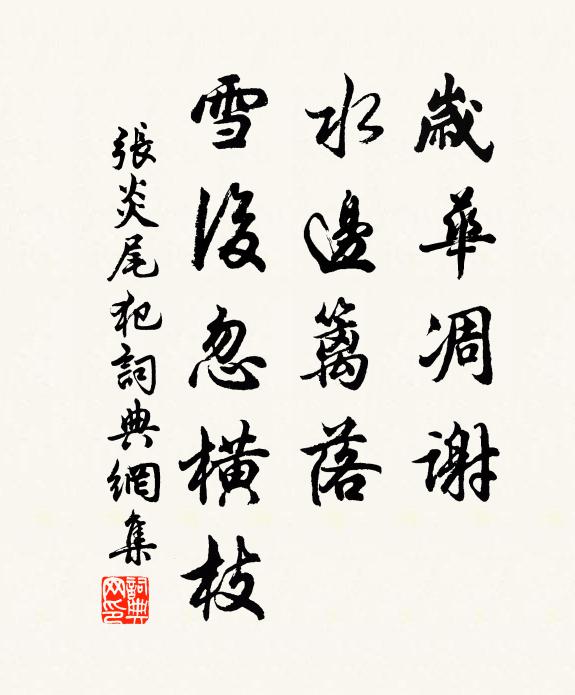 歲華凋謝
水邊籬落
雪後忽橫枝
張炎尾犯詞典網集
詞典
网印